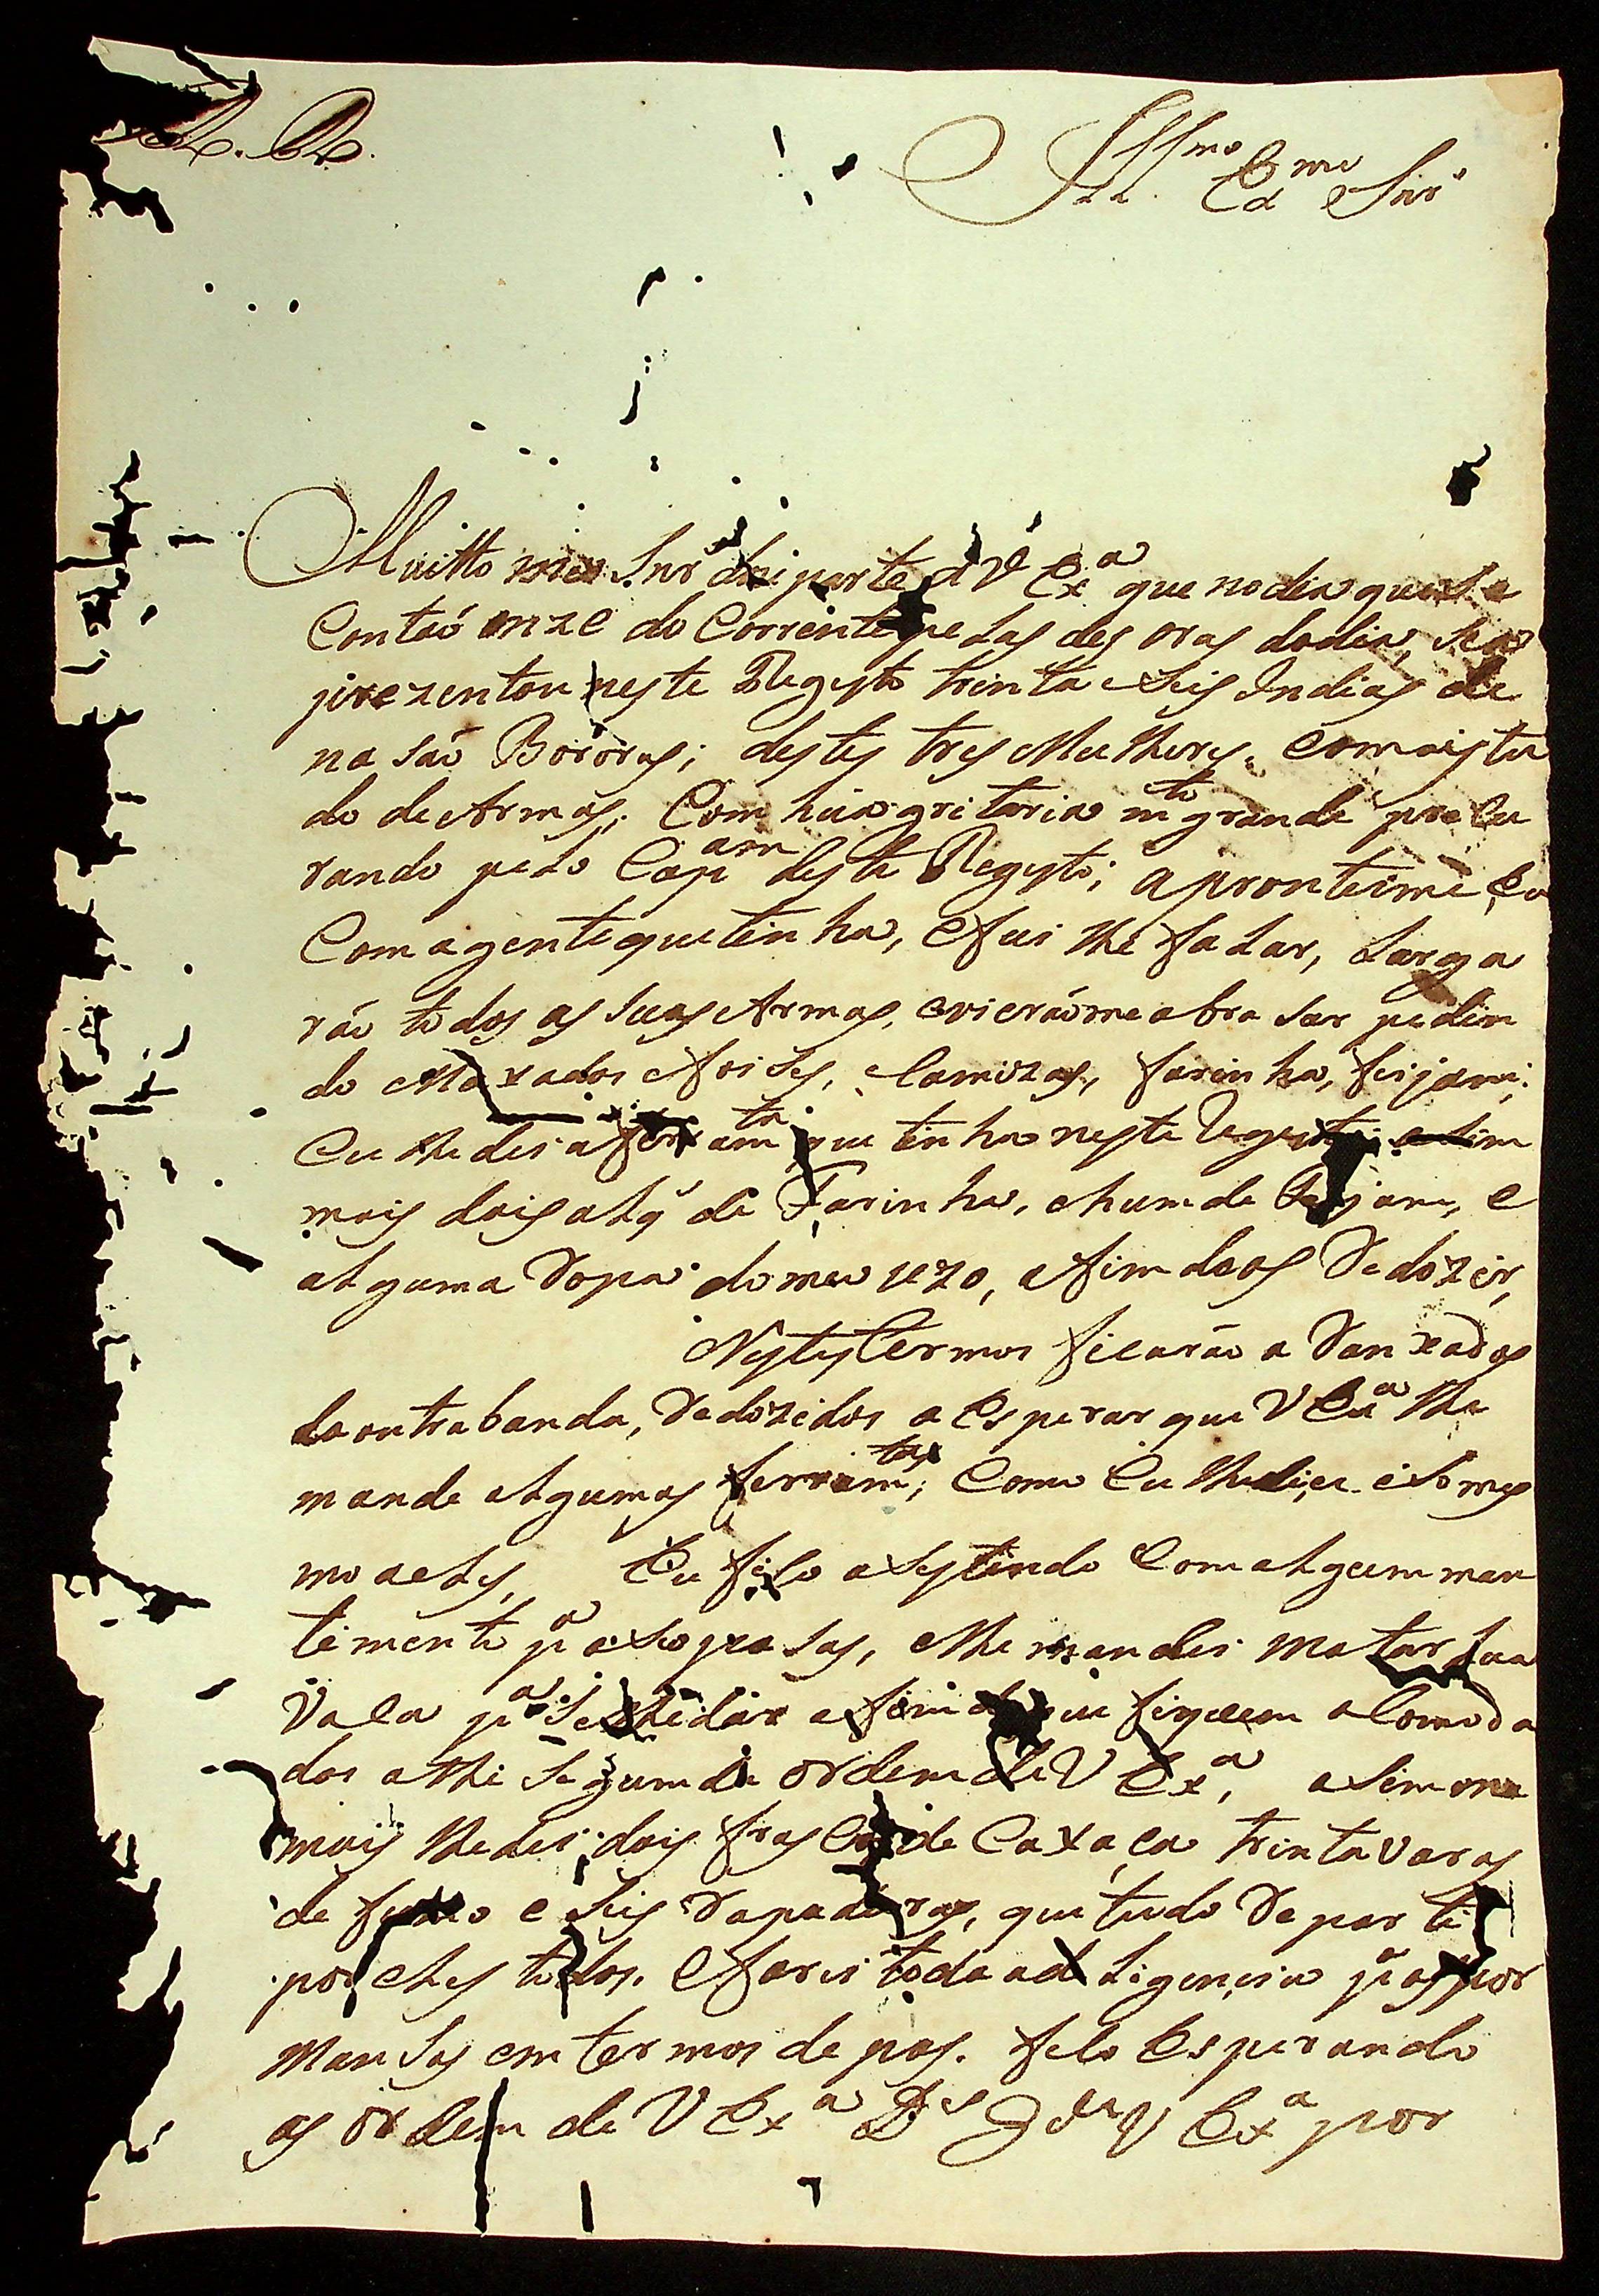 Illmo Exmo Snr
Muitto meu Snr dei parte a V Exa que no dia que se
Contaó onze do Corrente pelas des oras do dia, se a
prezentou neste Regysto trinta e Seis Indios de
na são Bororos; destes tres Mulheres, Com
do de Armas; Com húa gritaria mto grande procu
rando pelo Capam deste Regysto; aprontei me Eu
Com a gente que tinha, e fui lhe falar, Larga
ráo todos as suas Armas, e vieráo me abrasar pedin
do Maxados e foises, Camizas, farinha, feijam;
Eu lhe dei a ferramta que tinha neste Regisito
mais dois alqs de Farinha, e hum de feijam, e
alguma Ropa do meu uzo, afim de os Redozir,
Nestes Termos ficaráo a Ranxados
da outra banda, Redozidos a Esperar que V Exa lhe
mande algumas ferramtas; Como Eu lhe dice e So mes
mo aeles, Eu fico asestindo Com algum man
timento pa as Suas prasas, e lhe mandei matar húa
Vaca pa Se lhe dár afim de que fiquem a Comoda
dos athe Segunda ordem de V Exa, asim
mais lhe dei dois frascos de Caxaça trinta varas
de fumo e Seis Rapaduras, que tudo Reparti
por eles todos. E farei toda a deligencia pa os por
mansos em termos de pas. fico Esperando
as ordem de V Exa Ds Gde V Exa por